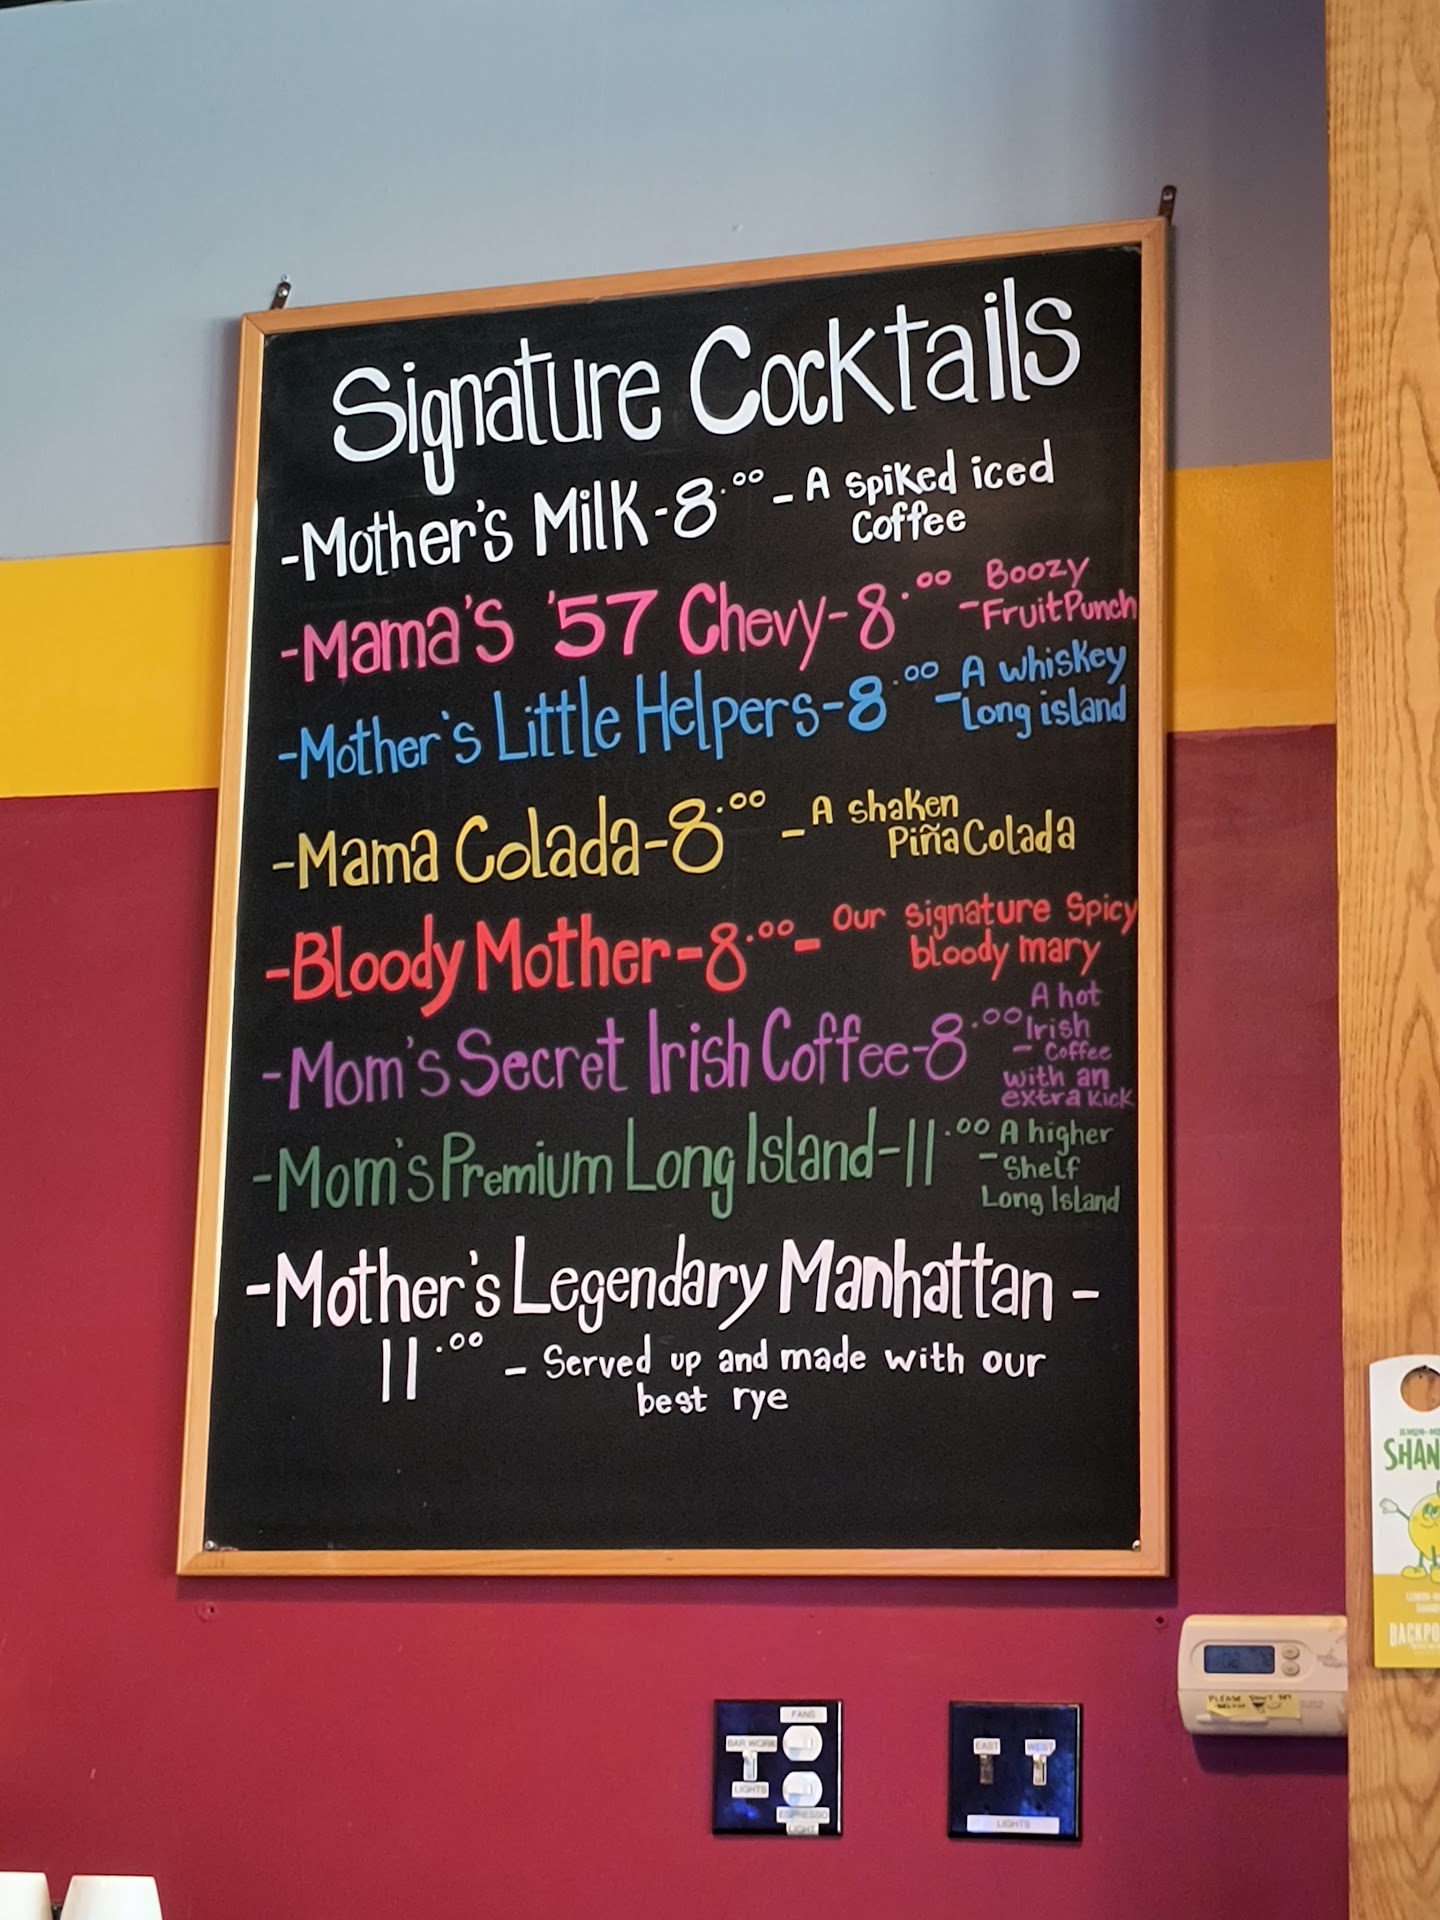 Signature Cocktails
-Mother's Milk-8.00 - A spiked iced
Coffee
-Mama's '57 Chevy-8.00 - Boozy
FruitPunch
-Mother's Little Helpers-8.00 - A whiskey
Long island
-Mama Colada-8.00 - A shaken
Piña Colada
-Bloody Mother-8.00- Our signature Spicy
bloody mary
-Mom's Secret Irish Coffee-8.00 - A hot
Irish
Coffee
with an
extra kick
-Mom's Premium Long Island-11.00 - A higher
Shelf
Long Island
-Mother's Legendary Manhattan -
11.00 - Served up and made with our
best rye
SHAN
BACKPO
PLEASE DON'T SET
BELOW
FANS
BAR WORK
LIGHTS
ESPRESSO
LIGHT
EAST
WEST
LIGHTS